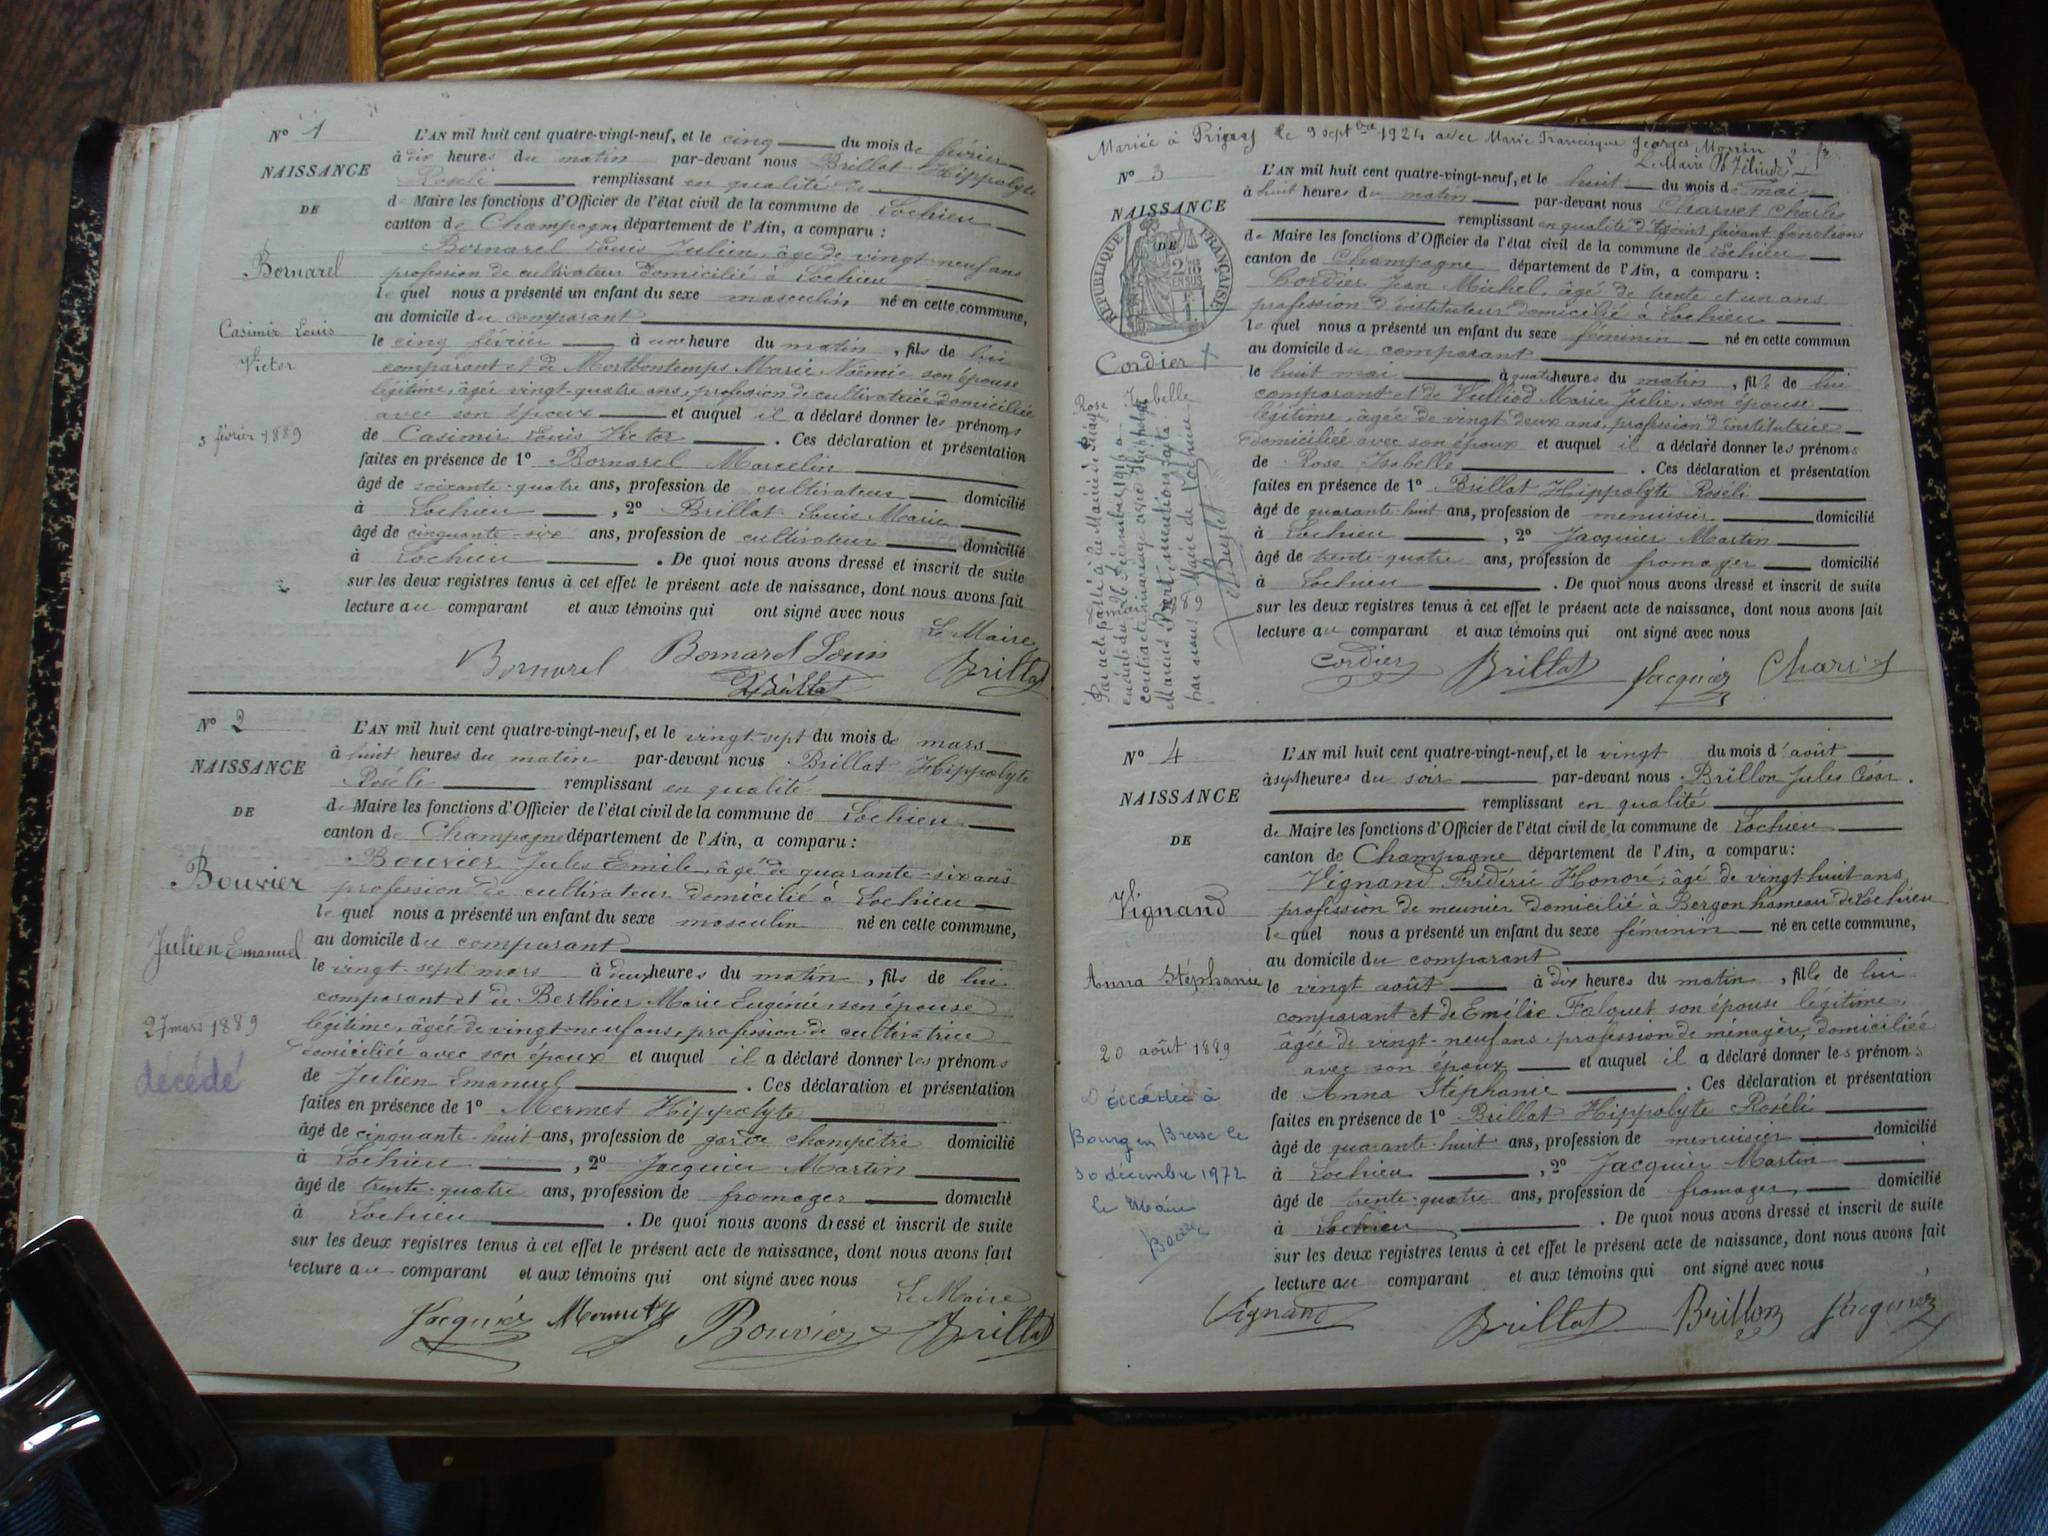 N° 1
NAISSANCE
DE
Bornarel
Casimir Louis
Victor
5 février 1889
L'AN mil huit cent quatre-vingt-neuf, et le cinq du mois de février
à dix heures du matin par-devant nous Brillat Hippolyte
Roséli remplissant en qualité de
de Maire les fonctions d'Officier de l'état civil de la commune de Lochieu
canton de Champagne département de l'Ain, a comparu :
Bornarel Louis Julien, âgé de vingt-neuf ans
profession de cultivateur domicilié à Lochieu
lequel nous a présenté un enfant du sexe masculin né en cette commune,
au domicile du comparant
le cinq février à une heure du matin, fils de lui
comparant et de Montbontemps Marie Noémie son épouse
légitime, âgée vingt-quatre ans, profession de cultivatrice domiciliée
avec son époux et auquel il a déclaré donner les prénoms
de Casimir Louis Victor. Ces déclaration et présentation
faites en présence de 1° Bornarel Marcelin
âgé de soixante-quatre ans, profession de cultivateur domicilié
à Lochieu, 2° Brillat Louis Marie
âgé de cinquante-six ans, profession de cultivateur domicilié
à Lochieu. De quoi nous avons dressé et inscrit de suite
sur les deux registres tenus à cet effet le présent acte de naissance, dont nous avons fait
lecture au comparant et aux témoins qui ont signé avec nous
Le Maire
Bornarel Bornarel Louis Brillat
Brillat
N° 2
NAISSANCE
DE
Bouvier
Julien Emanuel
27 mars 1889
décédé
L'AN mil huit cent quatre-vingt-neuf, et le vingt-sept du mois de mars
à huit heures du matin par-devant nous Brillat Hippolyte
Roséli remplissant en qualité
de Maire les fonctions d'Officier de l'état civil de la commune de Lochieu
canton de Champagne département de l'Ain, a comparu :
Bouvier Jules Emile, âgé de quarante-six ans
profession de cultivateur domicilié à Lochieu
lequel nous a présenté un enfant du sexe masculin né en cette commune,
au domicile du comparant
le vingt-sept mars à deux heures du matin, fils de lui
comparant et de Berthier Marie Eugénie, son épouse
légitime, âgée de vingt-neuf ans, profession de cultivatrice
domiciliée avec son époux et auquel il a déclaré donner les prénoms
de Julien Emanuel. Ces déclaration et présentation
faites en présence de 1° Mermet Hippolyte
âgé de cinquante-huit ans, profession de garde champêtre domicilié
à Lochieu, 2° Jacquier Martin
âgé de trente-quatre ans, profession de fromager domicilié
à Lochieu. De quoi nous avons dressé et inscrit de suite
sur les deux registres tenus à cet effet le présent acte de naissance, dont nous avons fait
lecture au comparant et aux témoins qui ont signé avec nous
Le Maire
Jacquier Mermet Bouvier Brillat
Mariée à le 9 septbre 1924 avec Marie Francisque Georges Monin
Le Maire
N° 3
NAISSANCE
DE
RÉPUBLIQUE FRANÇAISE
Cordier
Rose Isabelle
L'AN mil huit cent quatre-vingt-neuf, et le huit du mois de mai
à huit heures du matin par-devant nous Charvet Charles
remplissant en qualité d'adjoint faisant fonctions
de Maire les fonctions d'Officier de l'état civil de la commune de Lochieu
canton de Champagne département de l'Ain, a comparu :
Cordier Jean Michel, âgé de trente et un ans
profession d'instituteur domicilié à Lochieu
lequel nous a présenté un enfant du sexe féminin né en cette commun
au domicile du comparant
le huit mai à quatre heures du matin, fille de lui
comparant et de Vulliod Marie Julie, son épouse
légitime, âgée de vingt deux ans, profession d'institutrice
domiciliée avec son époux et auquel il a déclaré donner les prénoms
de Rose Isabelle. Ces déclaration et présentation
faites en présence de 1° Brillat Hippolyte Roséli
âgé de quarante-huit ans, profession de menuisier domicilié
à Lochieu, 2° Jacquier Martin
âgé de trente-quatre ans, profession de fromager domicilié
à Lochieu. De quoi nous avons dressé et inscrit de suite
sur les deux registres tenus à cet effet le présent acte de naissance, dont nous avons fait
lecture au comparant et aux témoins qui ont signé avec nous
Cordier Brillat Jacquier Charvet
Par acte passé à la Mairie de
en date du 26 décembre 1916 a
contracté mariage avec Hippolyte
Marius mention faite
par nous Maire de Lochieu
N° 4
NAISSANCE
DE
Vignand
Anna Stéphanie
20 août 1889
Décédée à
Bourg en Bresse le
30 décembre 1972
Le Maire
L'AN mil huit cent quatre-vingt-neuf, et le vingt du mois d'août
à sept heures du soir par-devant nous Brillon Jules César.
remplissant en qualité
de Maire les fonctions d'Officier de l'état civil de la commune de Lochieu
canton de Champagne département de l'Ain, a comparu :
Vignand Frédéric Honoré, âgé de vingt huit ans
profession de meunier domicilié à Bergon hameau de Lochieu
lequel nous a présenté un enfant du sexe féminin né en cette commune,
au domicile du comparant
le vingt août à dix heures du matin, fille de lui
comparant et de Emélie Falquet son épouse légitime,
âgée de vingt-neuf ans, profession de ménagère, domiciliée
avec son époux et auquel il a déclaré donner les prénoms
de Anna Stéphanie. Ces déclaration et présentation
faites en présence de 1° Brillat Hippolyte Roséli
âgé de quarante-huit ans, profession de menuisier domicilié
à Lochieu, 2° Jacquier Martin
âgé de trente-quatre ans, profession de fromager domicilié
à Lochieu. De quoi nous avons dressé et inscrit de suite
sur les deux registres tenus à cet effet le présent acte de naissance, dont nous avons fait
lecture au comparant et aux témoins qui ont signé avec nous
Vignand Brillat Brillon Jacquier